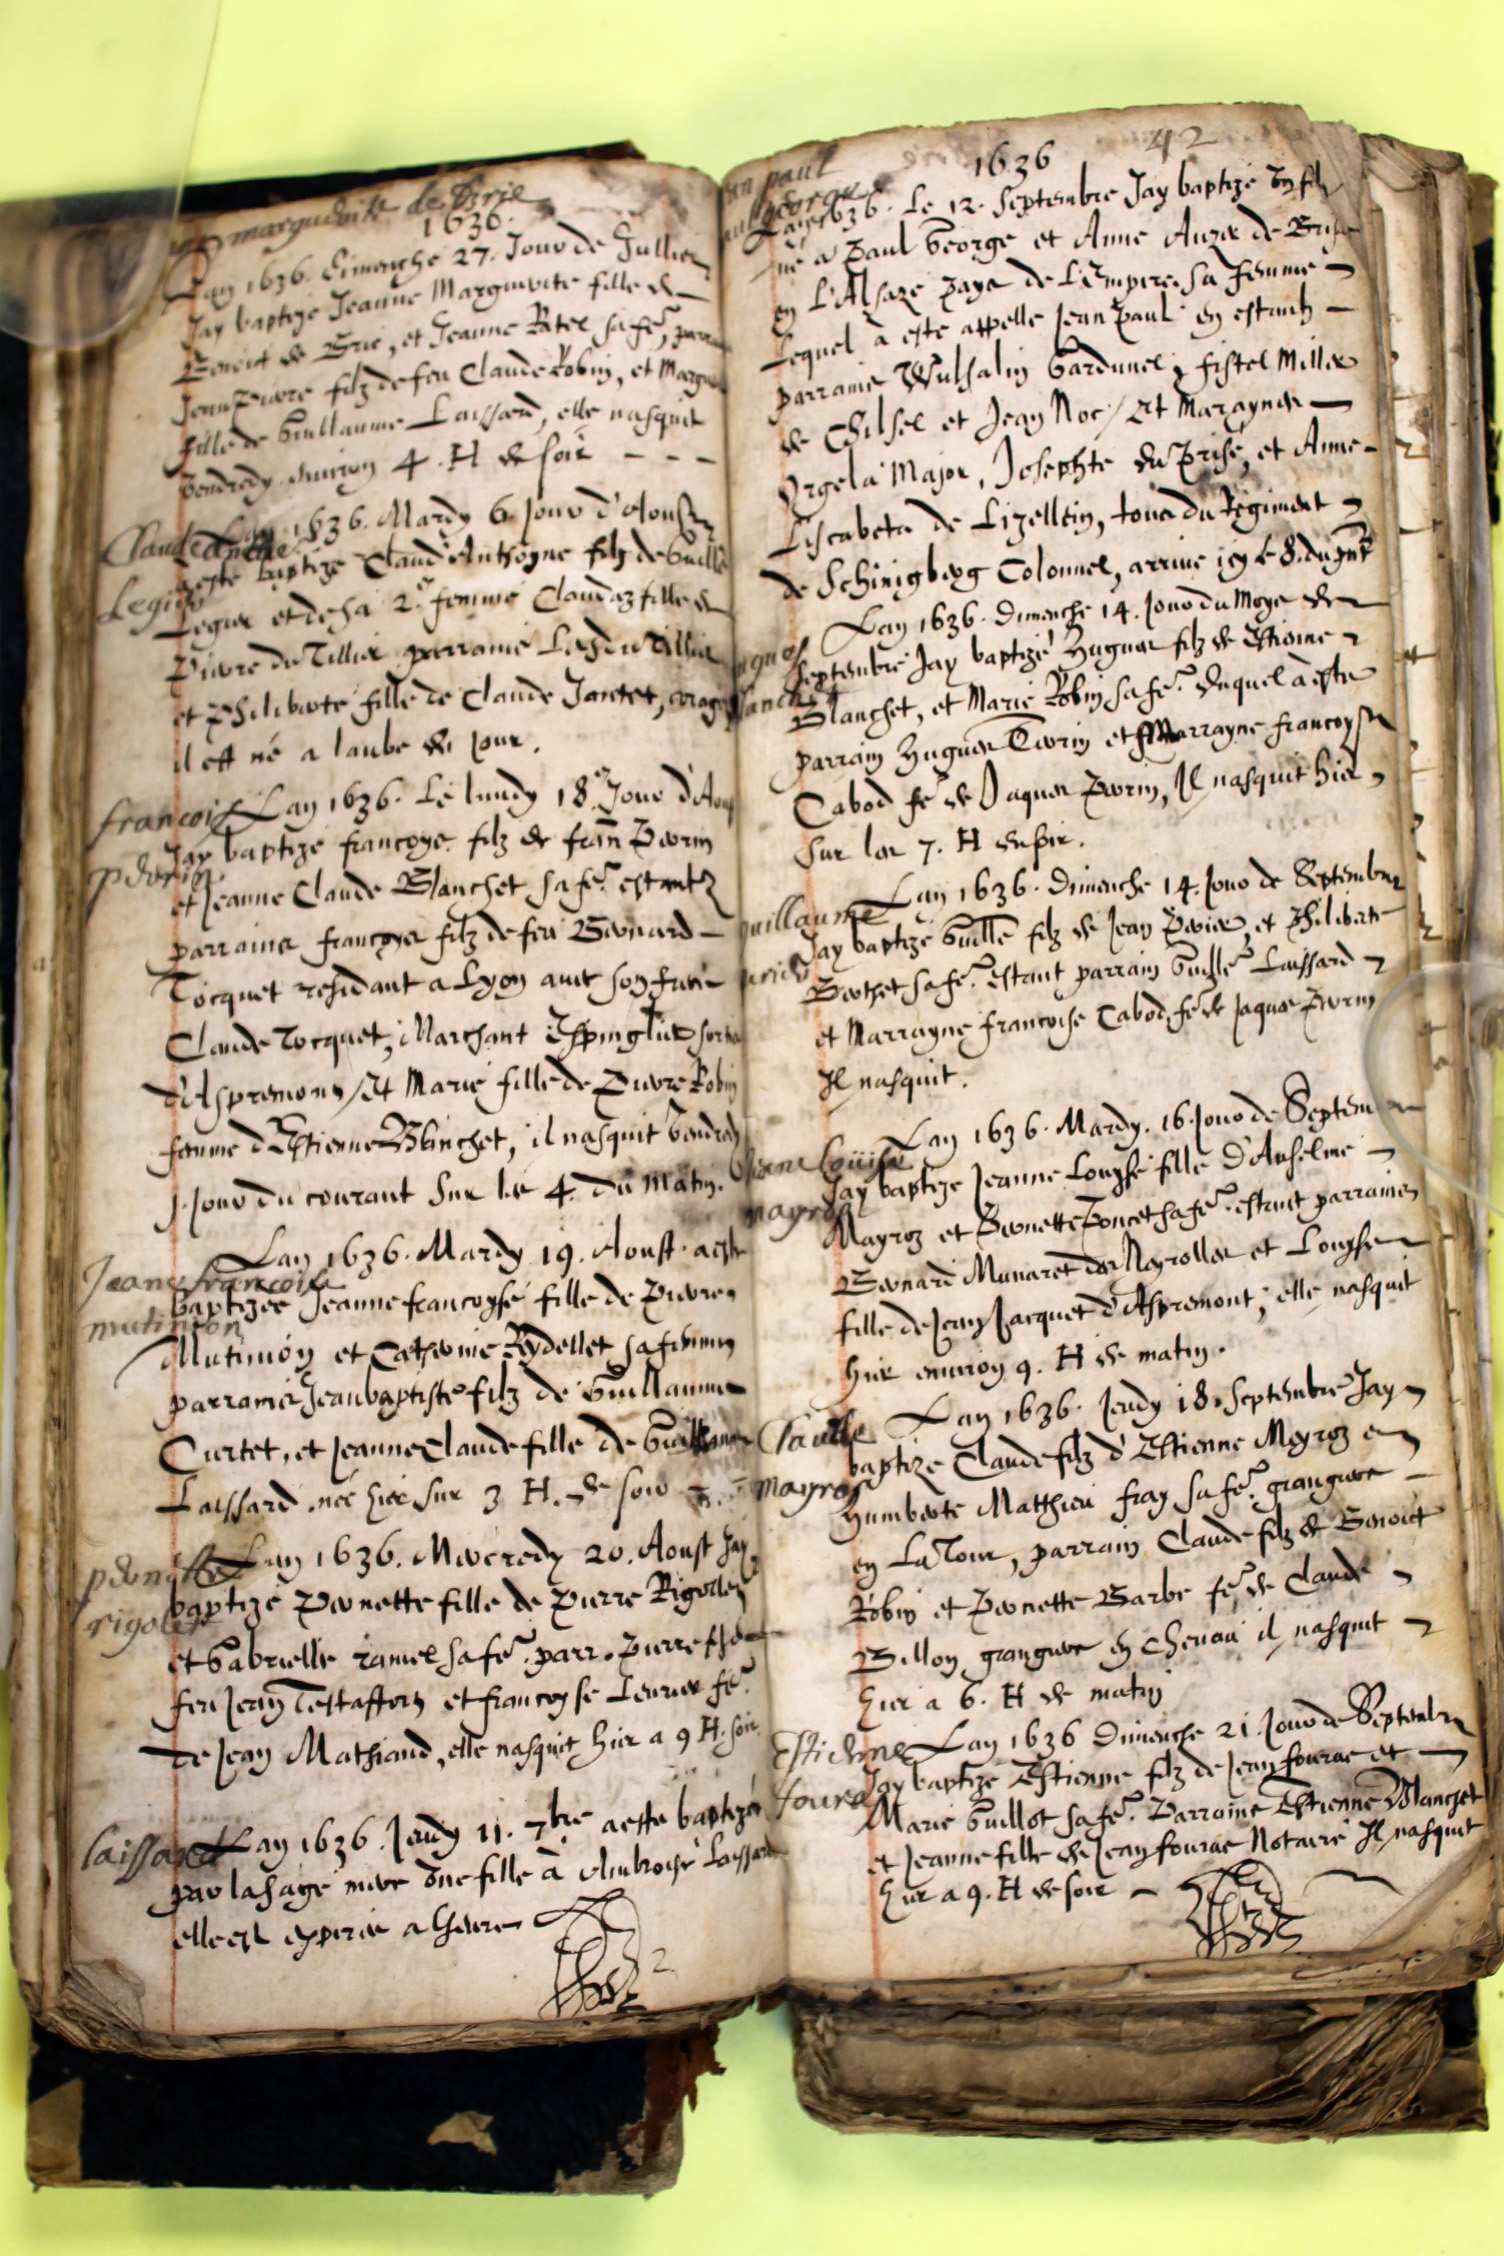 margueritte de Brie
1636.
Lan 1636. Dimenche 27. Jour de Jullier
Jay baptizé Jeanne Marguerite fille de
Benoict de Brie, et Jeanne Ratel sa fe, parr
Jean Pierre filz de feu Claude Robin, et Margue
fille de Guillaume Laissard, elle nasquit
Vendredy environ 4. H de soir - - -
Claude Anthe
Legier
Lan 1636. Mardy 6. Jour d'Aoust
a esté baptizé Claud Anthoyne filz de Guille
Legier et de sa 2e femme Claudaz fille de
Pierre du Tillier parraine du Tillier
et Philiberte fille de Claude Jantet,
il est né a laube du Jour.
francois
perrin
Lan 1636. Le lundy 18e Jour d'Aoust
Jay baptizé françoys filz de fran Perrin
et Jeanne Claude Blanchet sa fe. estantz
parraines françoys filz de feu Bernard
Tocquet residant a Lyon avec son frere
Claude Tocquet, Marchant Espinglier sortis
d'Aspremont / Et Marie fille de Pierre Robin
femme d'Estienne Blanchet, il nasquit Vendredy
J. Jour du courant Sur les 4. du Matin.
Jeane francoise
mutinon
Lan 1636. Mardy 19. Aoust a esté
baptizée Jeanne francoyse fille de Pierre
Mutinon et Catherine Rydellet sa femme
parraines Jean baptiste filz de Guillaume
Curtet, et Jeanne Claude fille de Guillaume
Laissard née hier sur 3 H. de soir
pernette
rigolet
Lan 1636. Mercredy 20. Aoust Jay
baptizé Pernette fille de Pierre Rigollet
et Gabrielle Ramel sa fe. parr. Pierre f de
feu Jean Testaffort et francoyse Leurier fe.
de Jean Mathiand, elle nasquit hier a 9 H. soir
laissard
Lan 1636. Jeudy 11. 7bre a esté baptizée
par la sage mere une fille à Ambroise Laissard
elle est experie a lheure
42
1636
Jean paul
george
Lan 1636. Le 12. Septembre Jay baptizé Un filz
né a Paul George et Anne Auzer de Brise
en L'Alsaze Pays de L'Empire. Sa femme
Lequel à esté appellé Jean Paul en estantz
parraines Wulsalin Gardunel, fistel Miller
de Chilsel et Jean Noc / Et Maraynes
Orgela Major, Josephte du Prisé, et Anne
Liscabeta de Lizellein, tous du Regiment
de Schinigberg Colonnel, arrivé icy le 8. du
Hugues
blanchet
Lan 1636. Dimenche 14. Jour du Moys de
Septembre Jay baptizé Hugues filz de Estienne
Blanchet, et Marie Robin sa fe. duquel à esté
parrain Hugues Perrin et Marrayne francoyse
Cabod fe de Jaques Perrin, Il nasquit hier
sur les 7. H du soir.
guillaume
perier
Lan 1636. Dimenche 14. Jour de Septembre
Jay baptizé Guille filz de Jean Perier, et Philiberte
Berthet sa fe. estant parrain Guille Laissard
et Marrayne francoise Cabod fe de Jaques Perrin
Il nasquit.
Jeane Louise
mayroz
Lan 1636. Mardy. 16. Jour de Septembre
Jay baptizé Jeanne Louyse fille D'Anselme
Mayroz et Pernette Poncet sa fe. estant parraines
Bernard Munaret des Neyrolles et Louyse
fille de Jean Jacquet d'Aspremont; elle nasquit
hier environ 9. H de matin.
Claude
mayroz
Lan 1636. Jeudy 18. Septembre Jay
baptizé Claude filz d'Estienne Mayroz et
Humberte Matthieu fray sa fe. grangiers
en La Tour, parrain Claude filz de Benoict
Robin et Pernette Barbe fe de Claude
Billon grangier en Chenau il nasquit
hier a 6. H de matin
Estienne
foura
Lan 1636 Dimenche 21. Jour de Septembre
Jay baptizé Estienne filz de Jean fouras et
Marie Guillot sa fe. Parraine Estienne Blanchet
et Jeanne fille de Jean fouras Notaire Il nasquit
hier a 9. H de soir